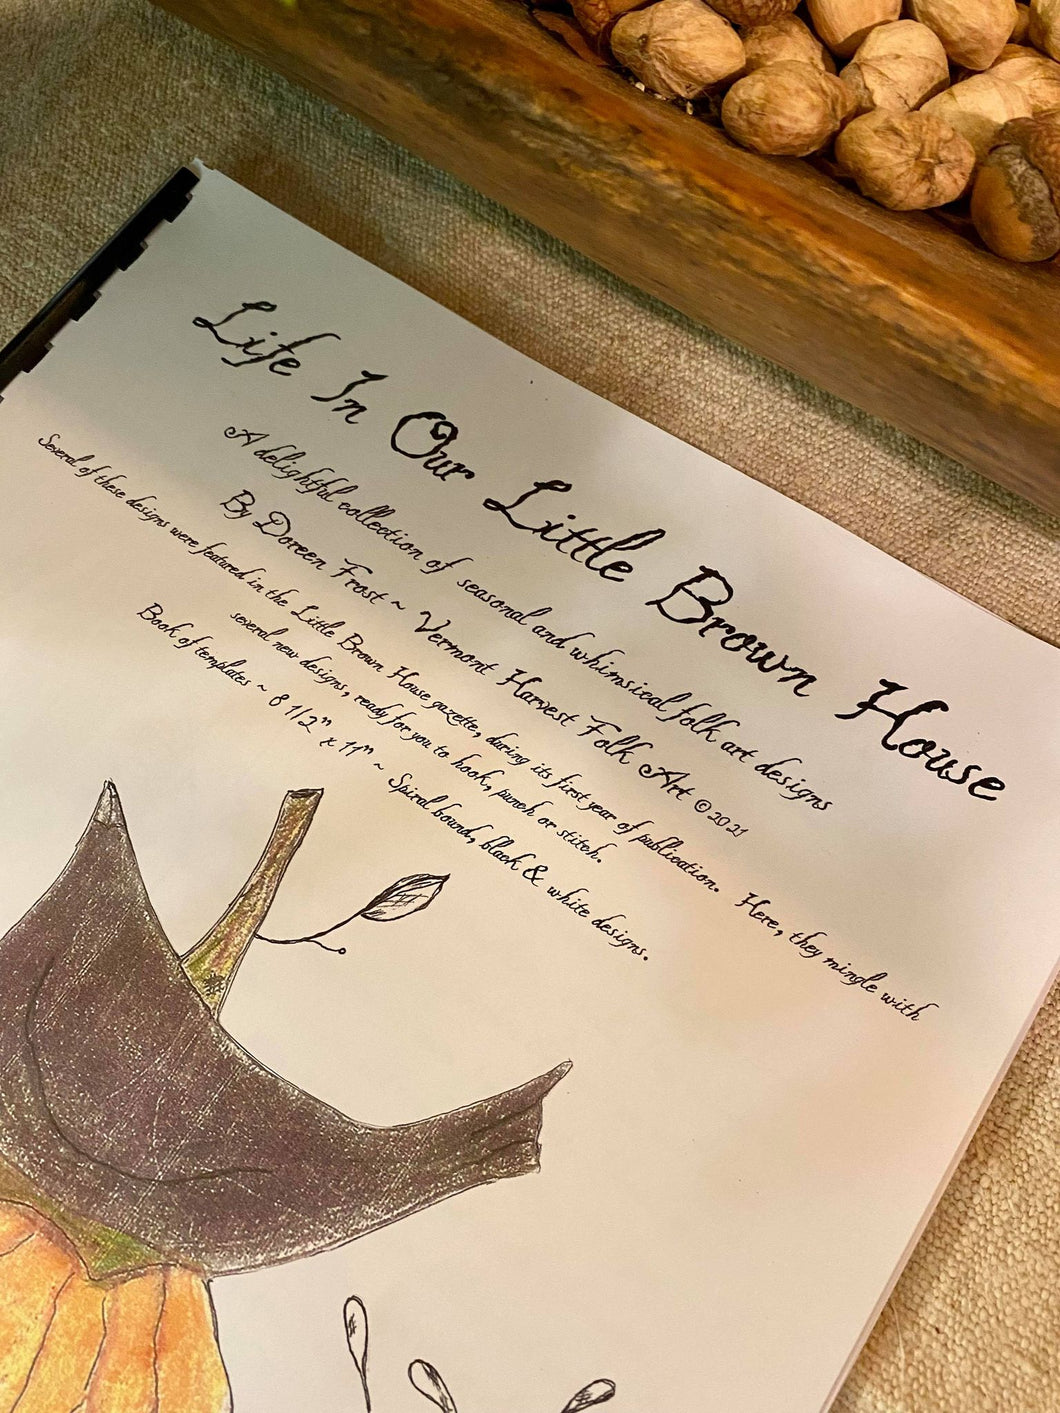 Life In Our Little Brown House
A delightful collection of seasonal and whimsical folk art designs
By Doreen Frost ~ Vermont Harvest Folk Art © 2021
Several of these designs were featured in the Little Brown House gazette, during its first year of publication. Here, they mingle with
several new designs, ready for you to hook, punch or stitch.
Book of templates ~ 8 1/2" x 11" ~ Spiral bound, black & white designs.